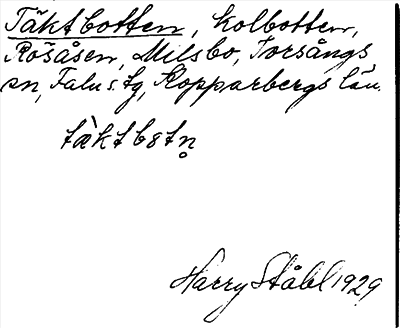 Täktbotten, kolbotten,
Rösåsen, Milsbo, Torsångs
sn, Falu s. tg, Kopparbergs län.
tæ̀ktbøtn̥
Harry Ståhl 1929